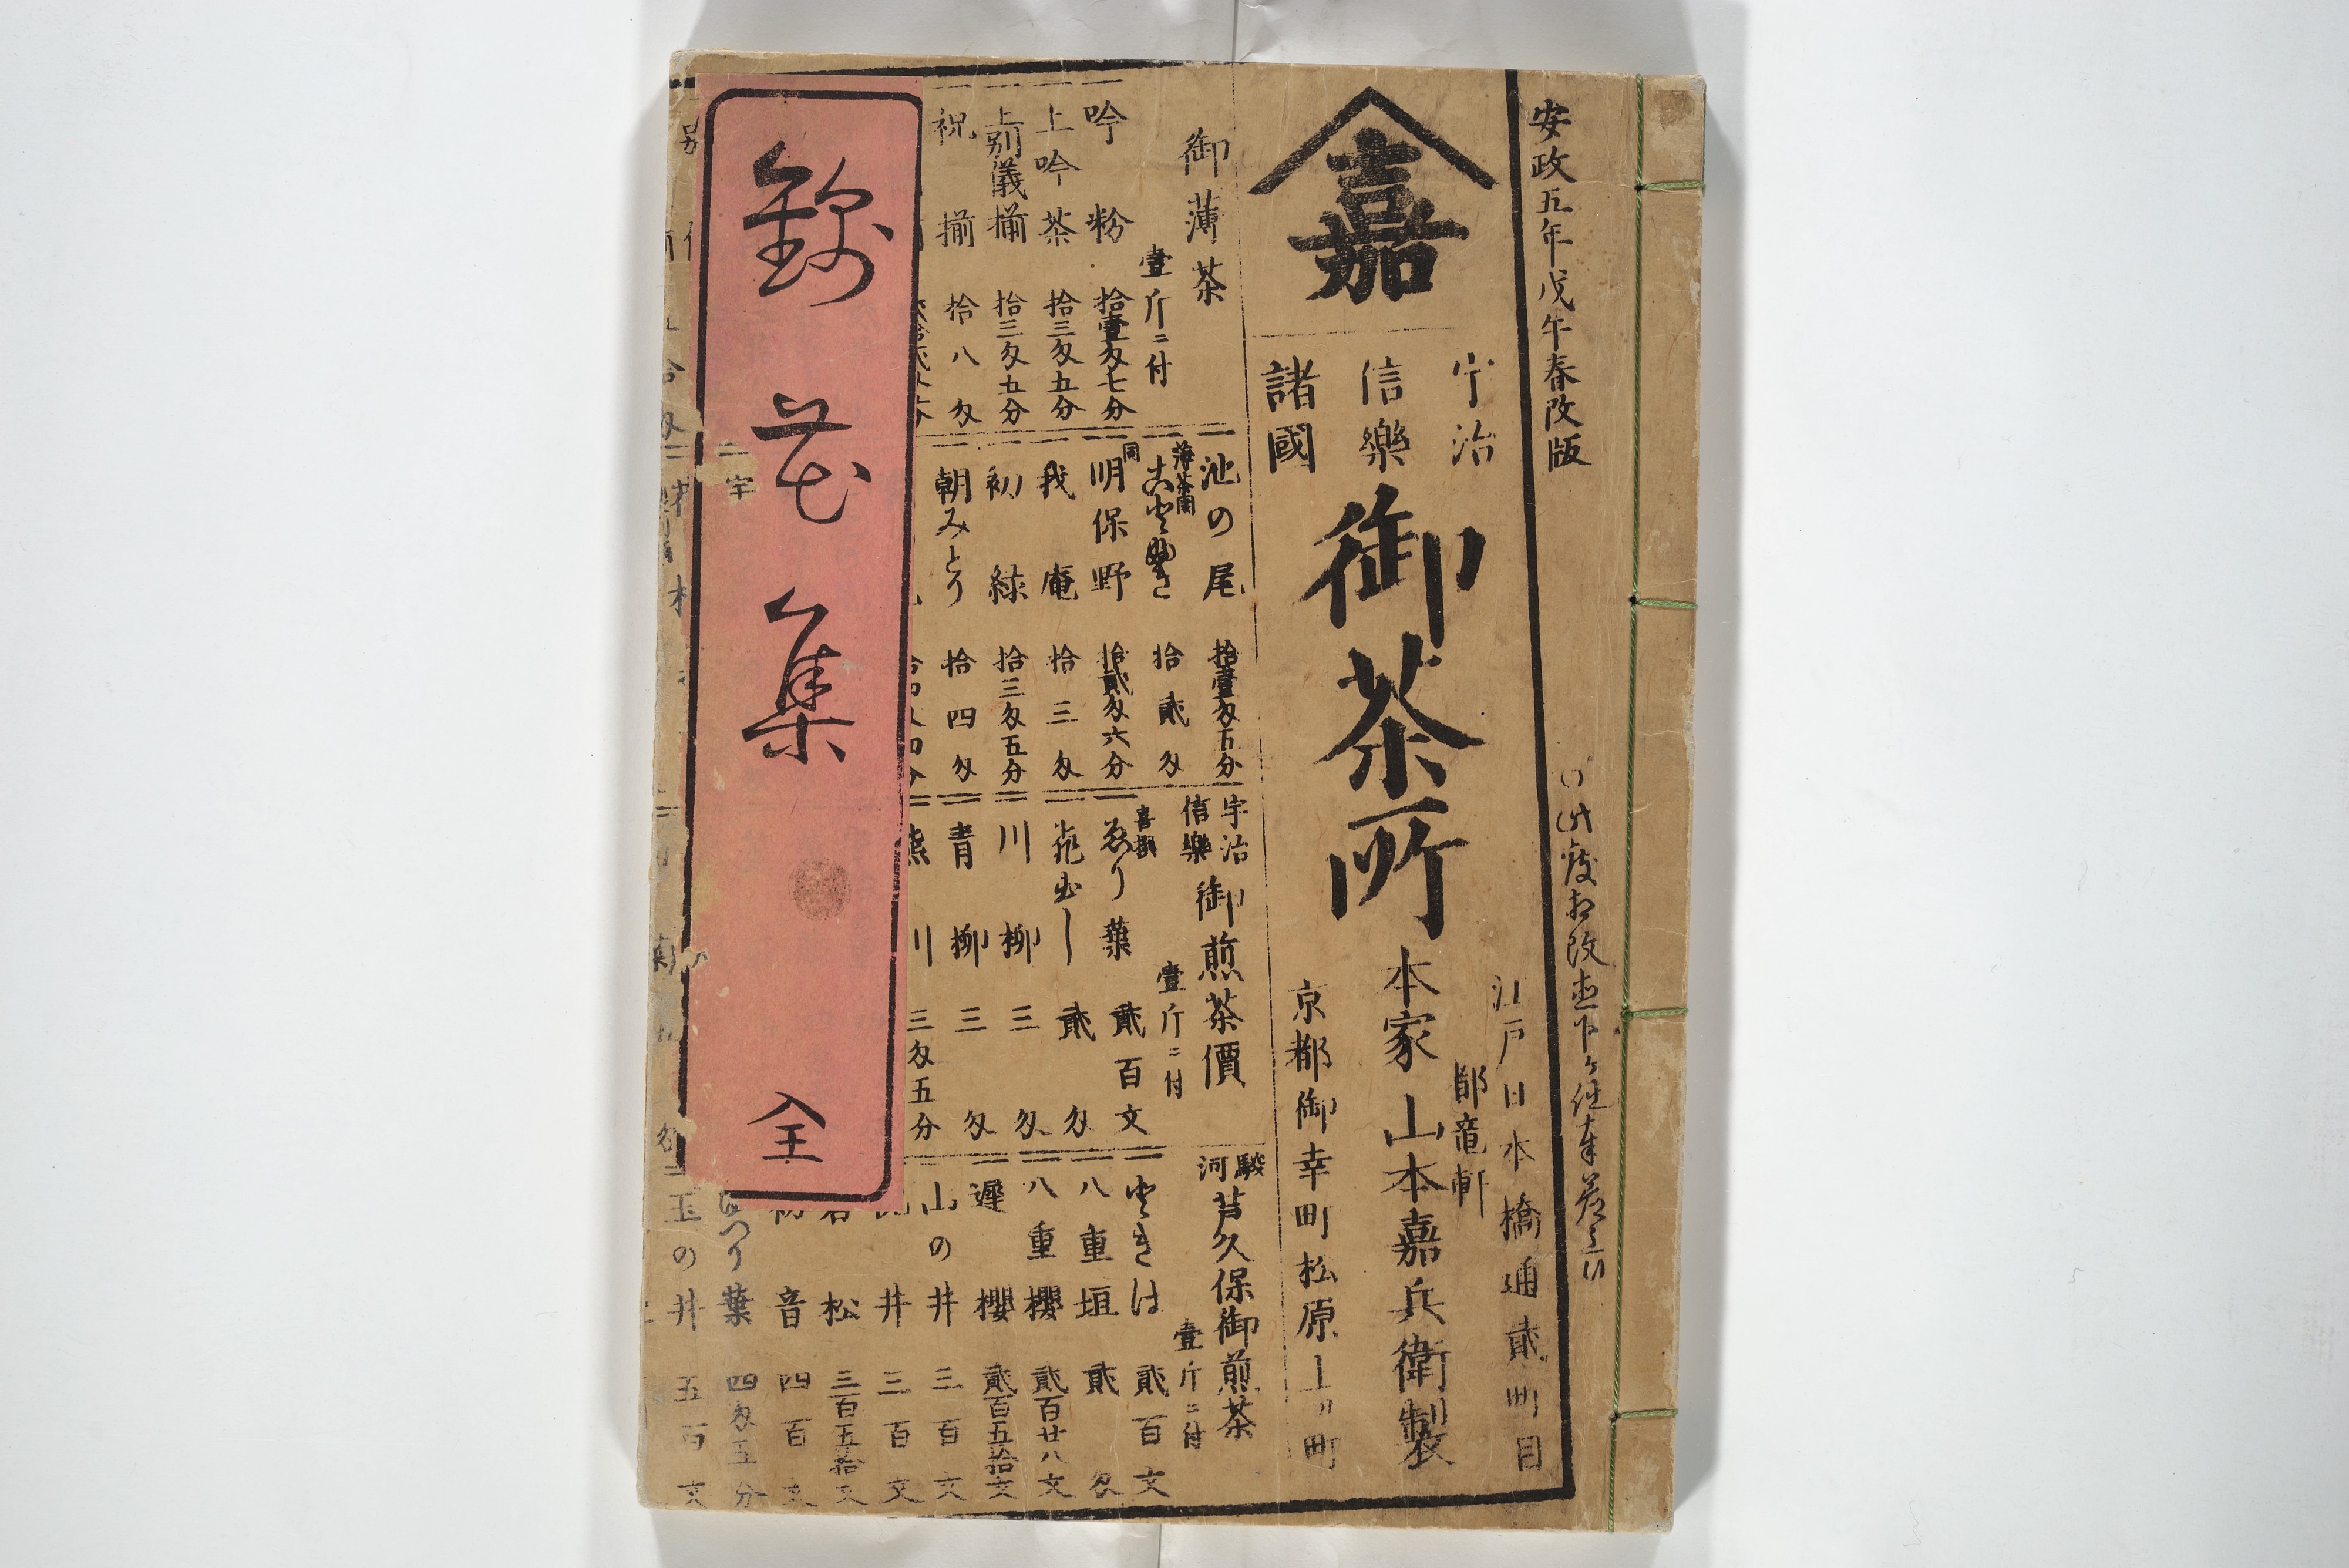 安政五年戊午春改版
江戸日本橋通貳町目
嘉
宇治
信樂
諸國
御茶所
都竜軒
本家 山本嘉兵衛製
京都御幸町松原上ル町
御薄茶
壹斤ニ付
吟粉 拾壹匁七分
上吟茶 拾三匁五分
上別儀揃 拾三匁五分
祝揃 拾八匁
池の尾 拾壹匁五分
薄茶用
拾貳匁
同
明保野 拾貳匁六分
我庵 拾三匁
初緑 拾三匁五分
朝みとり 拾四匁
宇治
信樂
御煎茶價
壹斤ニ付
喜撰
ゑり葉 貳百文
貳匁
川柳 三匁
青柳 三匁
三匁五分
駿河
芦久保御煎茶
壹斤ニ付
ときは 貳百文
八重垣 貳匁
八重櫻 貳百廿八文
遲櫻 貳百五拾文
山の井 三百文
井 三百文
松 三百五拾文
音 四百文
葉 四匁五分
玉の井 五百文
錦花集 全